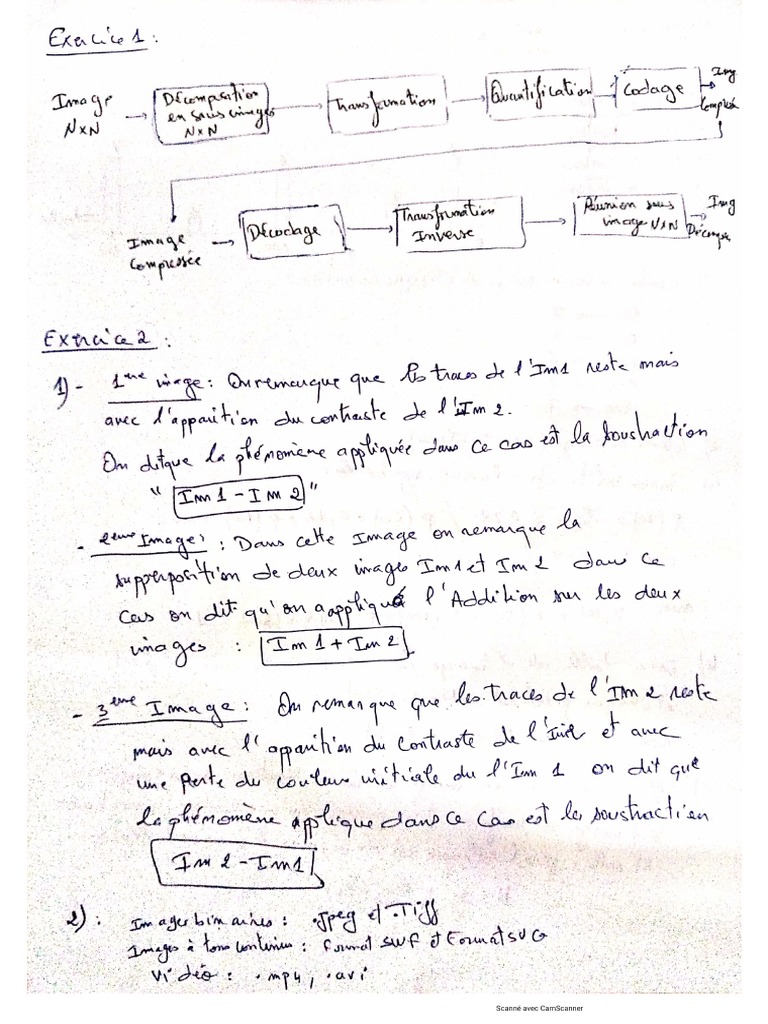 Exercice 1 :
Image
N×N
Décomposition
en sous images
N×N
Transformation
Quantification
Codage
Img
Compressé
Image
Compressée
Décodage
Transformation
Inverse
Réunion sous
image N×N
Img
Décompre
Exercice 2 :
1) - 1ere image : On remarque que les traces de l'Im1 reste mais
avec l'apparition du contraste de l'Im 2.
On dit que la phénomène appliquée dans ce cas est la soustraction
" Im 1 - Im 2 "
- 2eme Image : Dans cette Image on remarque la
supperposition de deux images Im 1 et Im 2 dans ce
cas on dit qu'on a appliqué l'Addition sur les deux
images : Im 1 + Im 2
- 3eme Image : On remarque que les traces de l'Im 2 reste
mais avec l'apparition du contraste de l' et avec
une perte du couleur initiale du l'Im 1 on dit que
la phénomène applique dans ce cas est la soustraction
Im 2 - Im 1
2) : Images binaires : .Jpeg et .Tiff
Images à tons continus : format SWF et Format SVG
Vidéo : .mp4, .avi
Scanné avec CamScanner